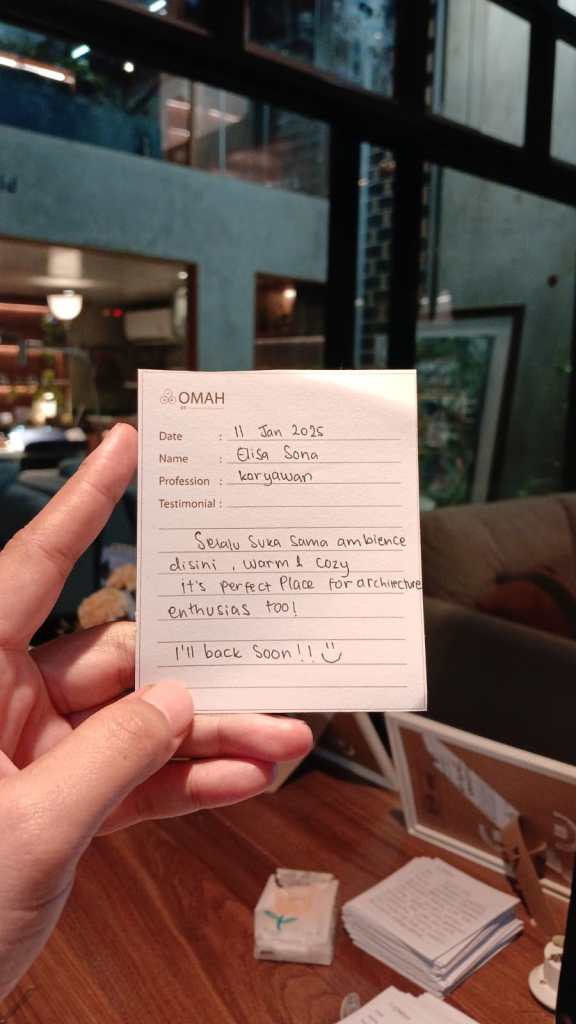 OMAH
Date : 11 Jan 2025
Name : Elisa Sona
Profession : koryawan
Testimonial :
Selalu suka sama ambience
disini , warm & cozy
it's perfect place for architecture
enthusias too!
I'll back soon!! :)